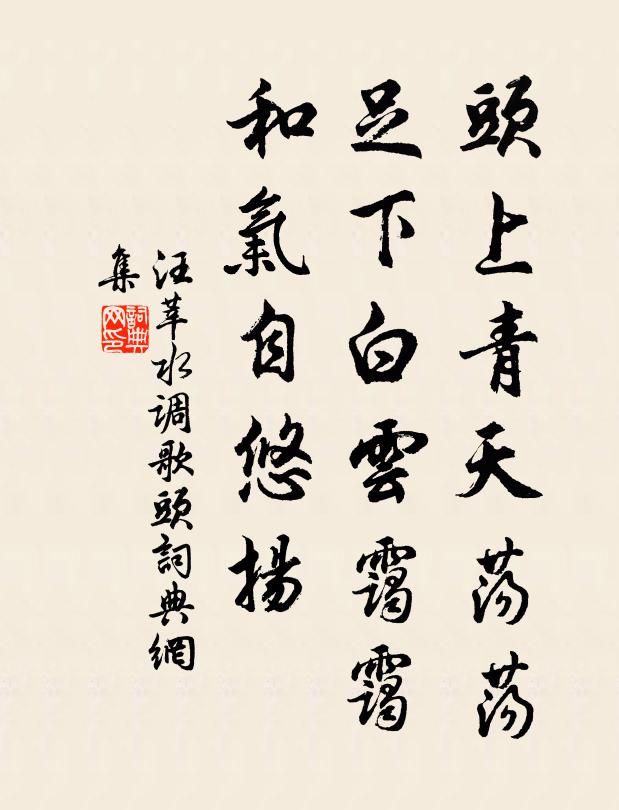 頭上青天蕩蕩
足下白雲靄靄
和氣自悠揚
汪莘水调歌頭詞典網
集
詞典
网印